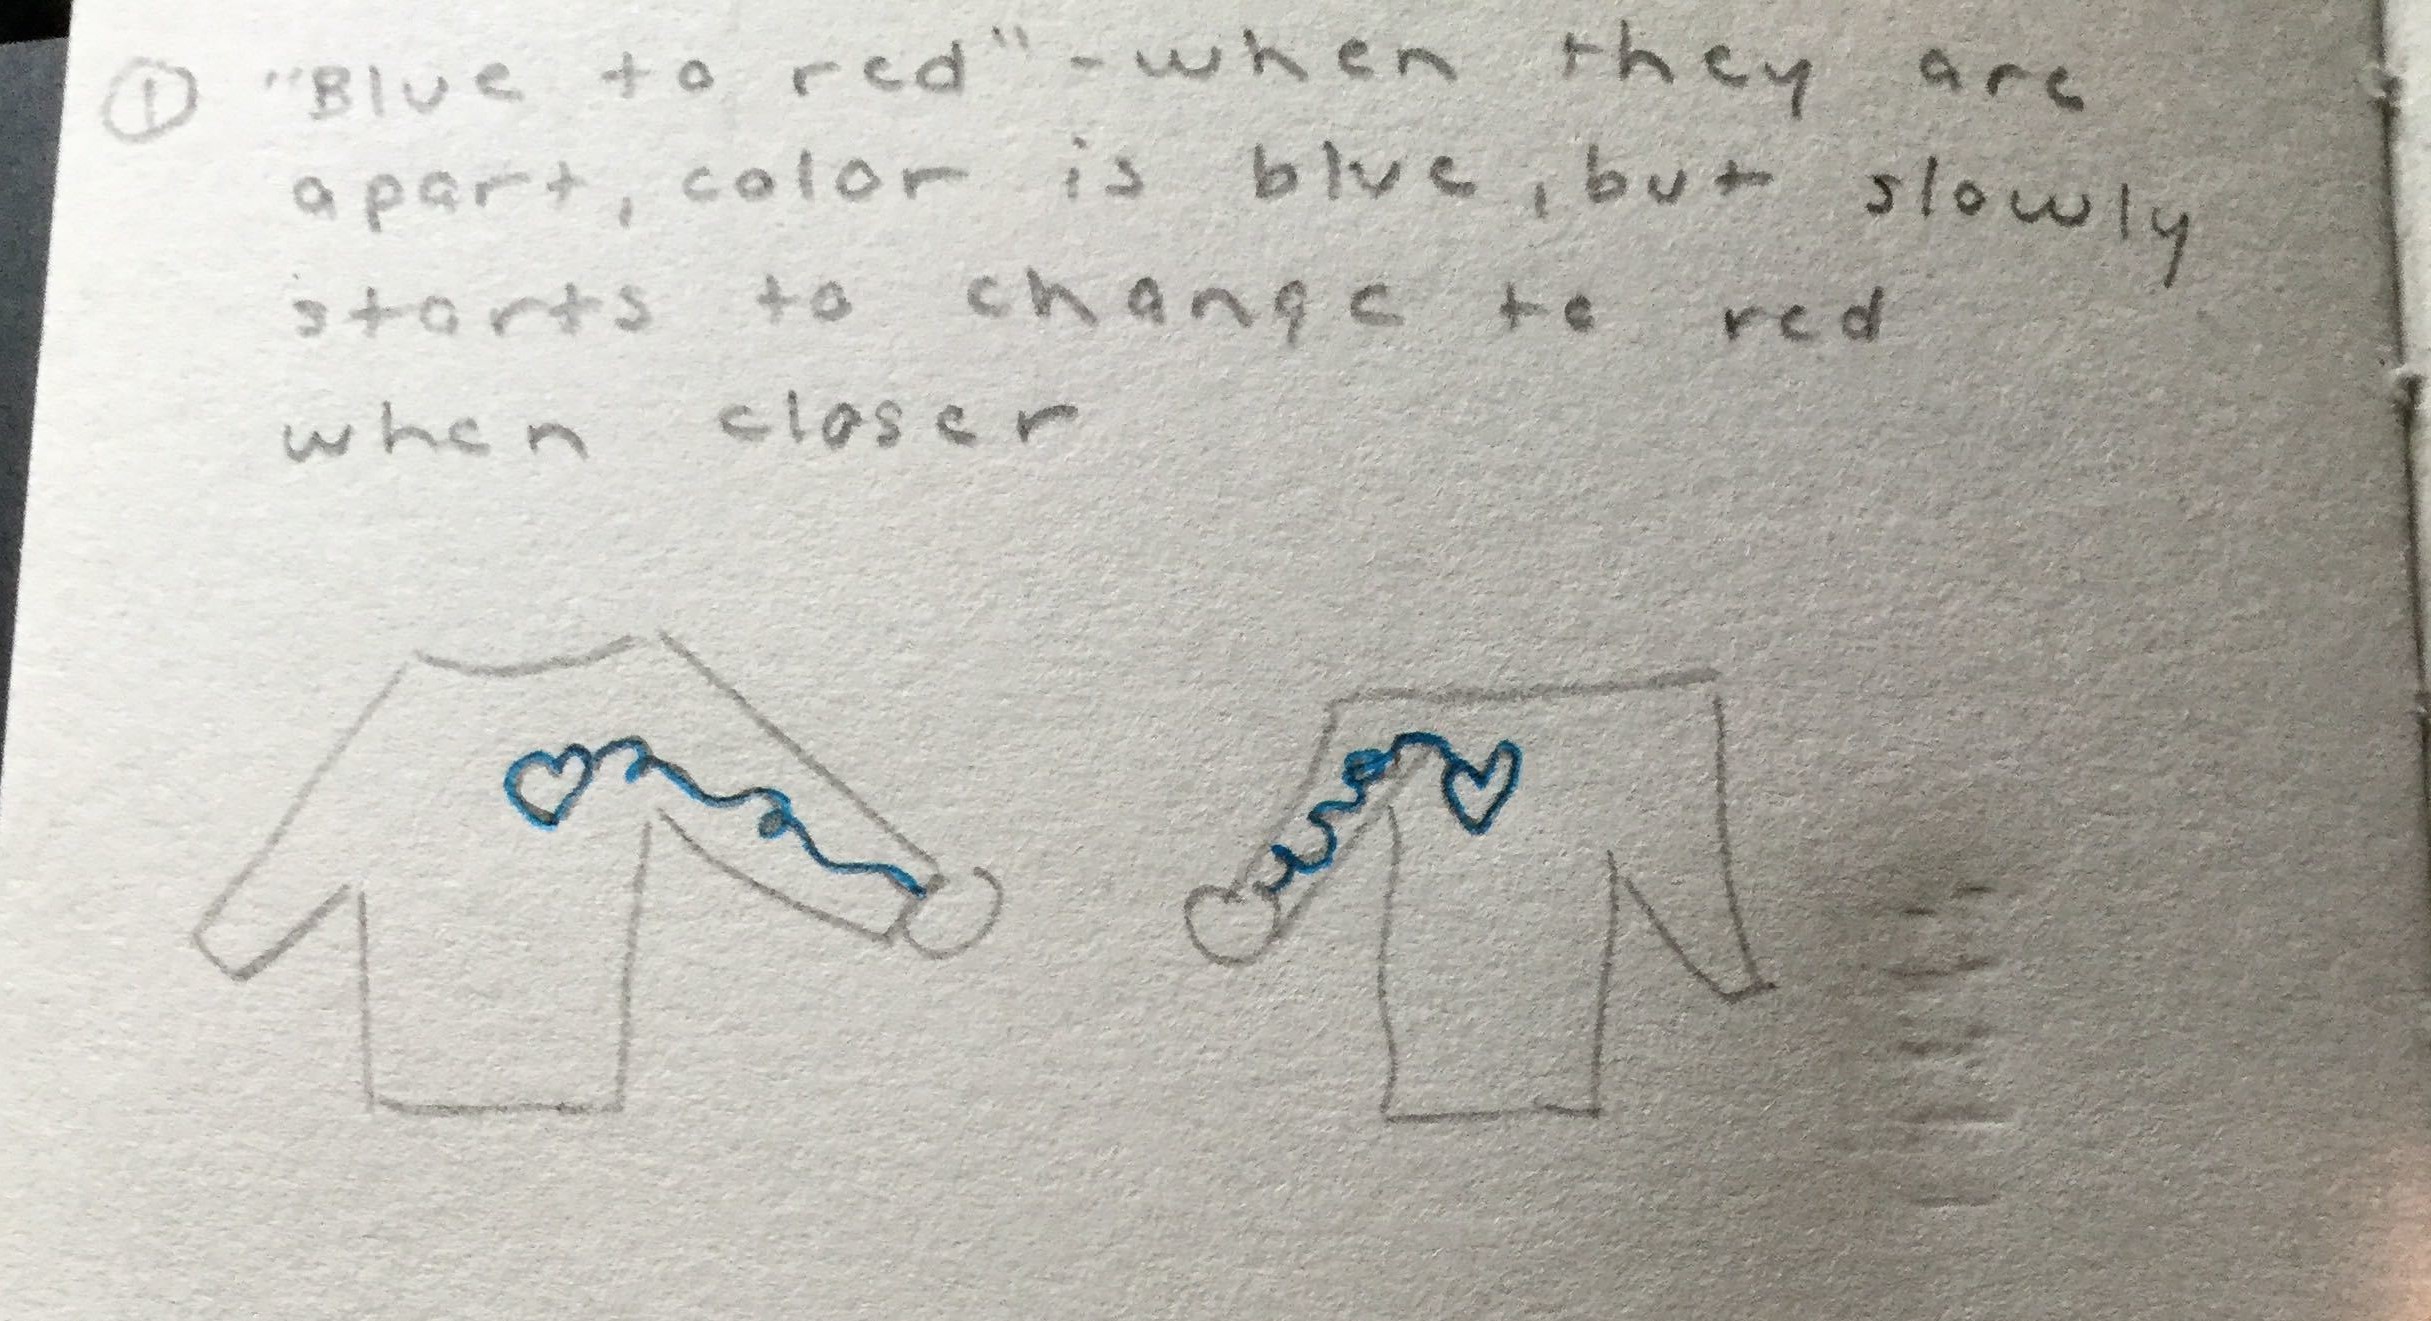 ① "Blue to red" - when they are
apart, color is blue, but slowly
starts to change to red
when closer